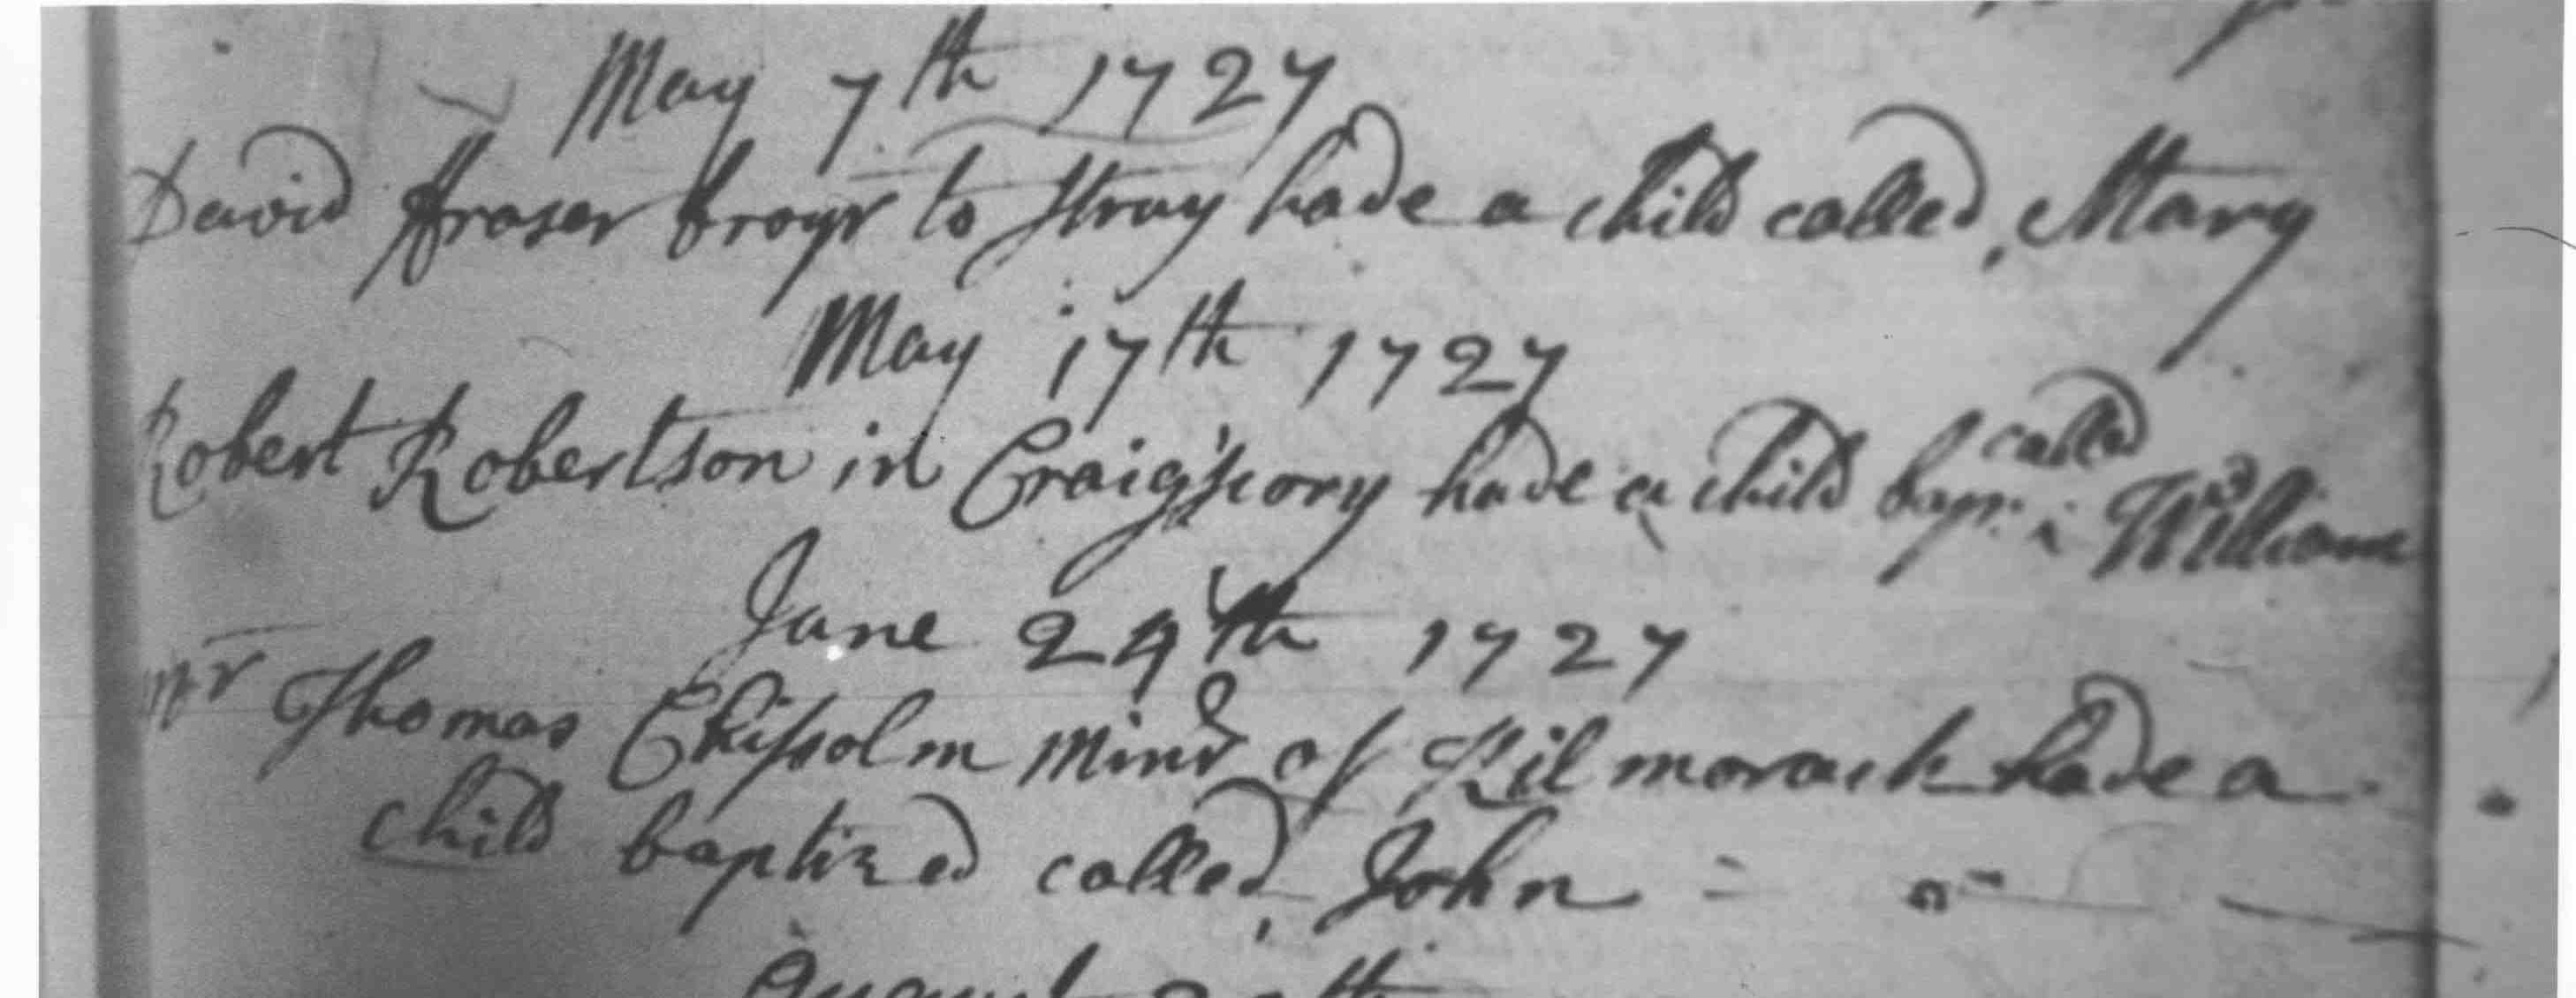 May 7th 1727
David ffraser broyr to Struy hade a child called, Mary
May 17th 1727
called
Robert Robertson in Craigscory hade a child bapt: William
June 24th 1727
Mr Thomas Chissolm Minr of Kilmorack hade a
child baptized called, John
August